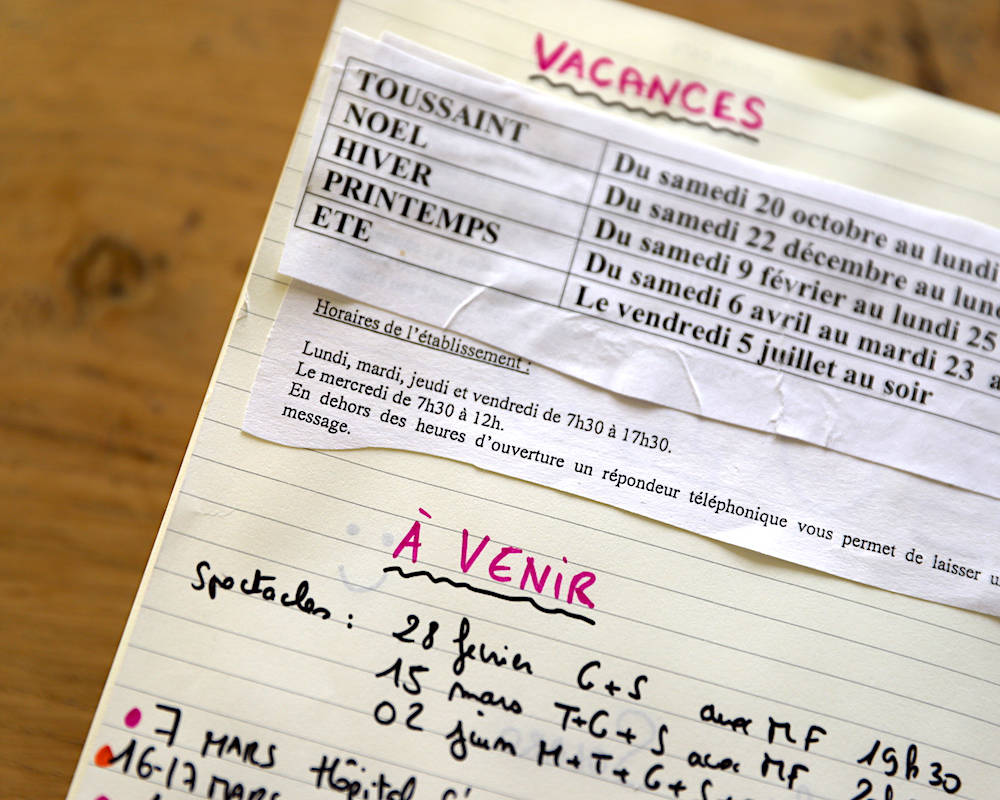 VACANCES
TOUSSAINT Du samedi 20 octobre au lundi
NOEL Du samedi 22 décembre au
HIVER Du samedi 9 février au lundi 25
PRINTEMPS Du samedi 6 avril au mardi 23
ETE Le vendredi 5 juillet au soir
Horaires de l'établissement :
Lundi, mardi, jeudi et vendredi de 7h30 à 17h30.
Le mercredi de 7h30 à 12h.
En dehors des heures d'ouverture un répondeur téléphonique vous permet de laisser
message.
À VENIR
Spectacles : 28 fevrier C+S avec MF 19h30
15 mars T+C+S avec MF
02 juin M+T+C+S
7 MARS Hôpital
16-17 MARS